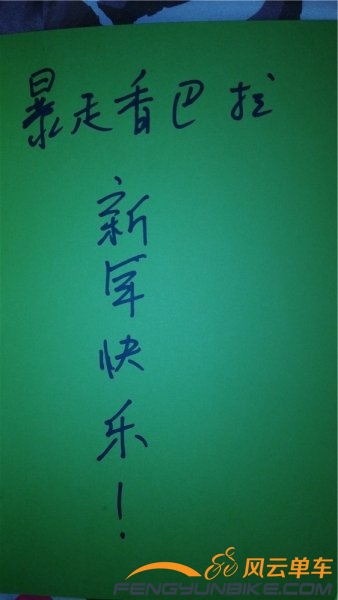 暴走香巴拉
新年快乐！
风云单车
FENGYUNBIKE.COM